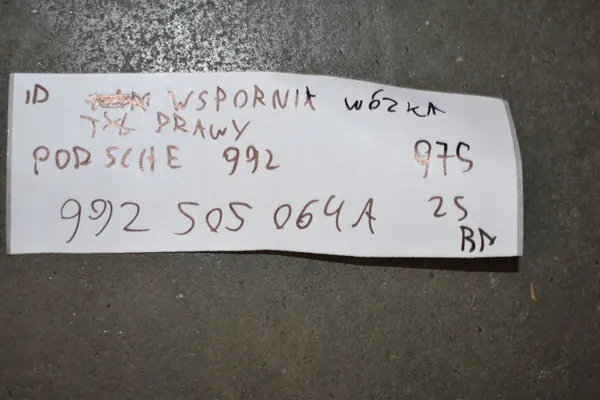 ID WSPORNIK WÓZKA
TYŁ PRAWY
PORSCHE 992 975
992 505 064A 25
BN